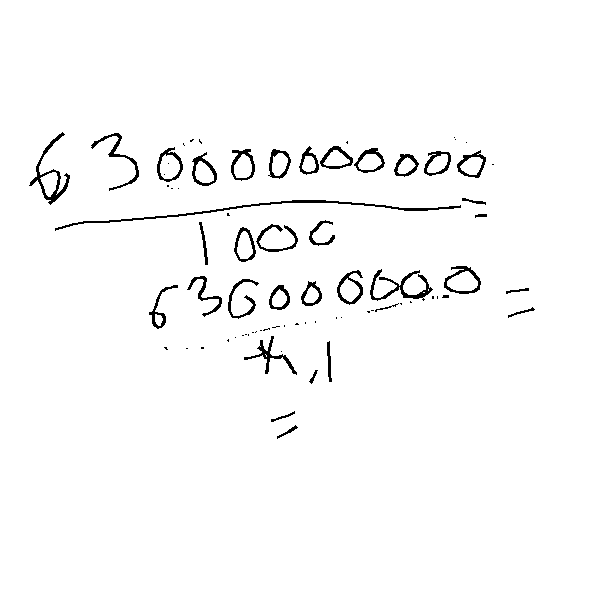 630000000000 =
1000
630000000 =
* .1
=